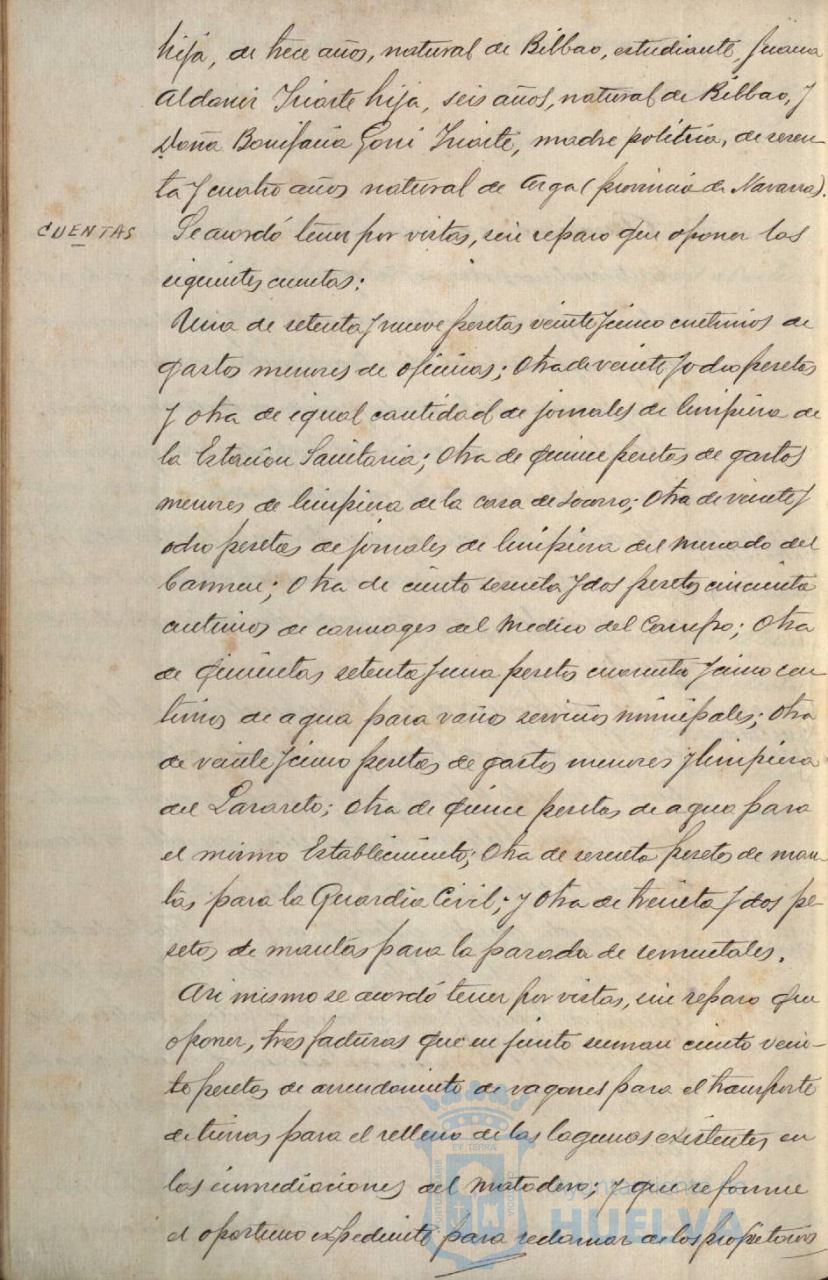 hija, de trece años, natural de Bilbao, estudiante, Juana
Aldanir Iriarte hija, seis años, natural de Bilbao, y
Doña Bonifacia Goñi Iriarte, madre politica, de sesen-
ta y cuatro años natural de Arga (provincia de Navarra).
CUENTAS
Se acordó tener por vistas, sin reparo que oponer las
siguientes cuentas:
Una de setenta y nueve pesetas veinte y cinco centimos de
gastos menores de oficinas; Otra de veinte y ocho pesetas
y otra de igual cantidad de jornales de limpieza de
la Estacion Sanitaria; Otra de quince pesetas de gastos
menores de limpieza de la casa de socorro; Otra de veinte y
ocho pesetas de jornales de limpieza del Mercado del
Carmen; Otra de ciento sesenta y dos pesetas cincuenta
centimos de carruages del Medico del Campo; Otra
de quinientas setenta y una pesetas cuarenta y cinco cen
timos de agua para varios servicios municipales; Otra
de veinte y cinco pesetas de gastos menores y limpieza
del Lazareto; Otra de quince pesetas de agua para
el mismo Establecimiento; Otra de sesenta pesetas de man-
tas para la Guardia Civil; y Otra de treinta y dos pe-
setas de mantas para la parada de sementales.
Asi mismo se acordó tener por vistas, sin reparo que
oponer, tres facturas que en junto suman ciento vein-
te pesetas de arrendamiento de vagones para el transporte
de tierras para el relleno de las lagunas existentes en
las inmediaciones del Matadero; y que se forme
el oportuno expediente para reclamar de los propietarios
HUELVA